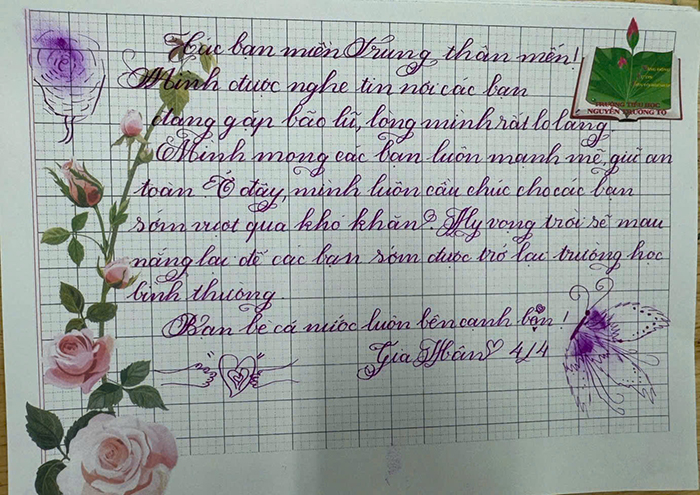 Các bạn miền Trung thân mến!
Mình được nghe tin nơi các bạn
đang gặp bão lũ, lòng mình rất lo lắng
Mình mong các bạn luôn mạnh mẽ, giữ an
toàn. Ở đây, mình luôn cầu chúc cho các bạn
sớm vượt qua khó khăn. Hy vọng trời sẽ mau
nắng lại để các bạn sớm được trở lại trường học
bình thường.
Bạn bè cả nước luôn bên cạnh bạn!
Gia Hân 4/4
TRƯỜNG TIỂU HỌC
NGUYỄN TRƯỜNG TỘ